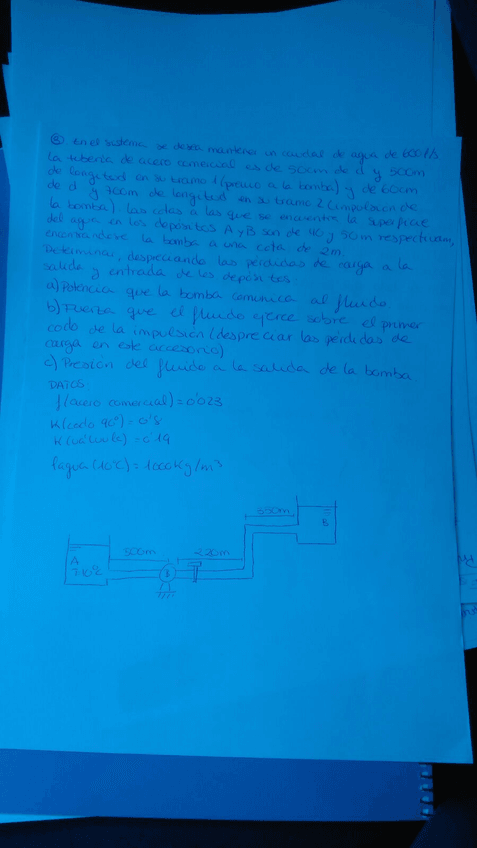 ⑧ En el sistema se desea mantener un caudal de agua de 600 l/s
la tubería de acero comercial es de 50cm de d y 500m
de longitud en su tramo 1 (previo a la bomba) y de 60cm
de d y 700m de longitud en su tramo 2 (impulsión de
la bomba). Las cotas a las que se encuentra la superficie
del agua en los depósitos A y B son de 40 y 90m respectivam,
encontrándose la bomba a una cota de 2m.
Determinar, despreciando las pérdidas de carga a la
salida y entrada de los depósitos:
a) Potencia que la bomba comunica al fluido
b) Fuerza que el fluido ejerce sobre el primer
codo de la impulsión (despreciar las pérdidas de
carga en este accesorio)
c) Presión del fluido a la salida de la bomba
DATOS:
f (acero comercial) = 0'023
K (codo 90°) = 0'8
K (válvula) = 0'19
ρagua (10°C) = 1000 Kg/m³
550m
B
500m
220m
A
T=10°C